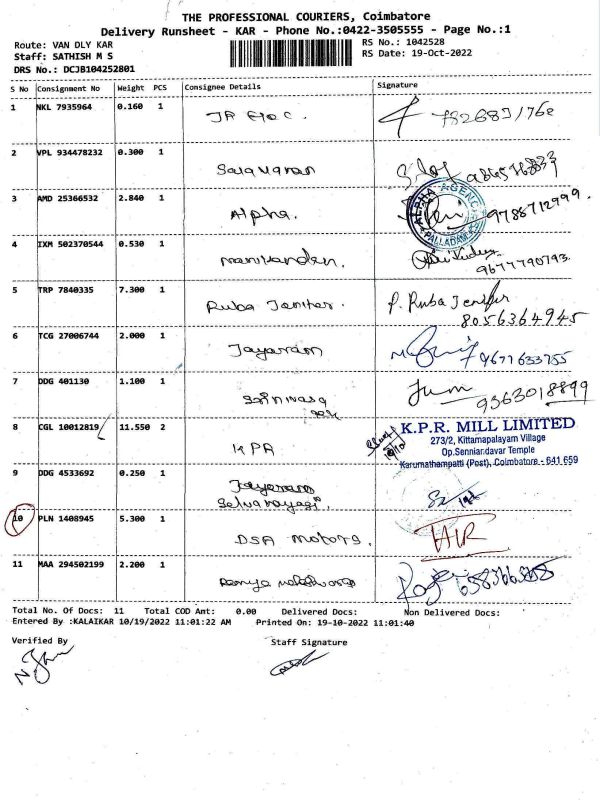 THE PROFESSIONAL COURIERS, Coimbatore
Delivery Runsheet - KAR - Phone No.:0422-3505555 - Page No.:1
Route: VAN DLY KAR
RS No.: 1042528
Staff: SATHISH M S
RS Date: 19-Oct-2022
DRS No.: DCJB104252801
S No Consignment No Weight PCS Consignee Details Signature
1 NKL 7935964 0.160 1 JP Elec.
2 VPL 934478232 0.300 1 Saravanan
3 AMD 25366532 2.840 1 Alpha. 9788712999.
ALPHA AGENC
PALLADAM
4 IXM 502370544 0.530 1 Manikanden. 9677790793.
5 TRP 7840335 7.300 1 Ruba Jenifer. P. Ruba Jenifer
8056364945
6 TCG 27006744 2.000 1 Jayaram 9677633755
7 DDG 401130 1.100 1 9363018899
8 CGL 10012819 11.550 2 KPR
K.P.R. MILL LIMITED
273/2, Kittamapalayam Village
Op.Senniandavar Temple
Karumathampatti (Post), Coimbatore - 641 659
9 DDG 4533692 0.250 1
Selvanayagi.
10 PLN 1408945 5.300 1 DSA Motors.
11 MAA 294502199 2.200 1 Ramya
Total No. Of Docs: 11 Total COD Amt: 0.00 Delivered Docs: Non Delivered Docs:
Entered By :KALAIKAR 10/19/2022 11:01:22 AM Printed On: 19-10-2022 11:01:40
Verified By Staff Signature